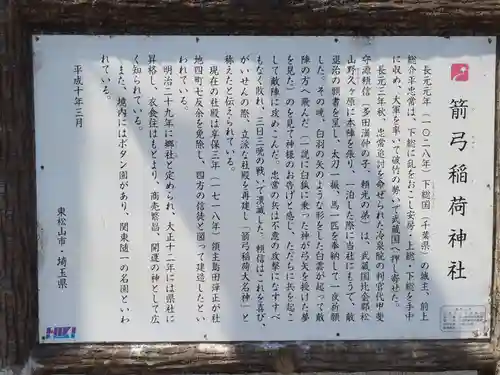 箭弓稲荷神社
長元元年（一〇二八年）下総国（千葉県）の城主、前上
総介平忠常は、下総に乱をおこし安房・上総・下総を手中
に収め、大軍を率いて破竹の勢いで武蔵国へ押し寄せた。
長元三年秋、忠常追討を命ぜられた冷泉院の判官代甲斐
守源頼信（多田満仲の子、頼光の弟）は、武蔵国比企郡松
山野久ヶ原に本陣を張り、一泊した際に当社にもうで、敵
退治の願書を呈し、太刀一振、馬一匹を奉納して一夜祈願
した。その暁、白羽の矢のような形をした白雲が起って敵
陣の方へ飛んだ（一説に白狐に乗った神が弓矢を授けた夢
を見た）のを見て神様のお告げと感じ、ただちに兵を起こ
して敵陣に攻めこんだ。忠常の兵は不意の攻撃になすすべ
もなく敗れ、三日三晩の戦いで潰滅した。頼信はこれを喜び、
がいせんの際、立派な社殿を再建し「箭弓稲荷大名神」と
称えたと伝えられている。
現在の社殿は享保三年（一七一八年）領主島田弾正が社
地四町七反余を免除し、四方の信徒と図って建造したとい
われている。
明治二十九年に郷社と定められ、大正十二年には県社に
昇格し、衣食住はもとより、商売繁昌、開運の神として広
く知られている。
また、境内にはボタン園があり、関東随一の名園といわ
れている。
平成十年三月
東松山市・埼玉県
HIKI